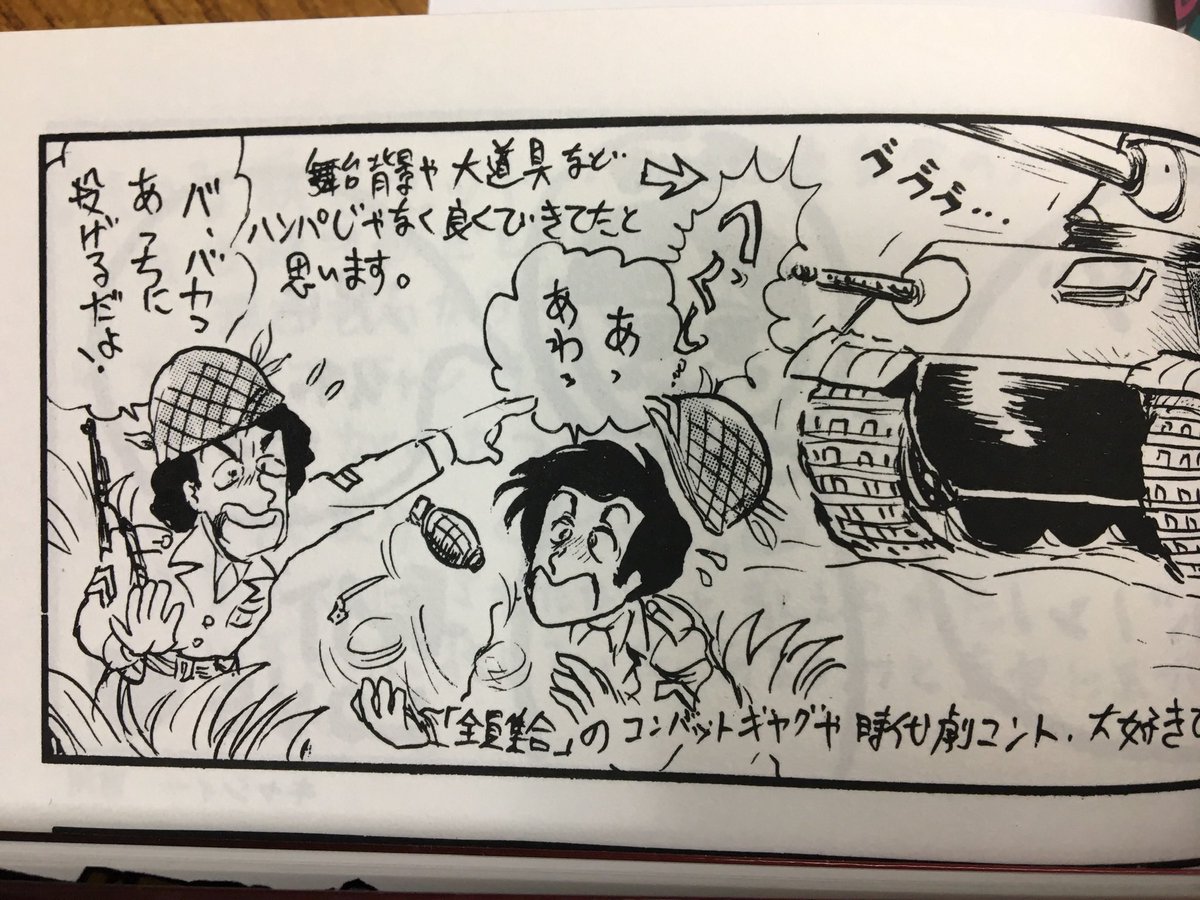 ゴゴゴゴ...
舞台背景や大道具など
ハンパじゃなく良くできてたと
思います。
バ、バカっ
あっちに
投げるだよ!
あっ
あわっ
「全員集合」のコンバットギャグや時代劇コント、大好きで